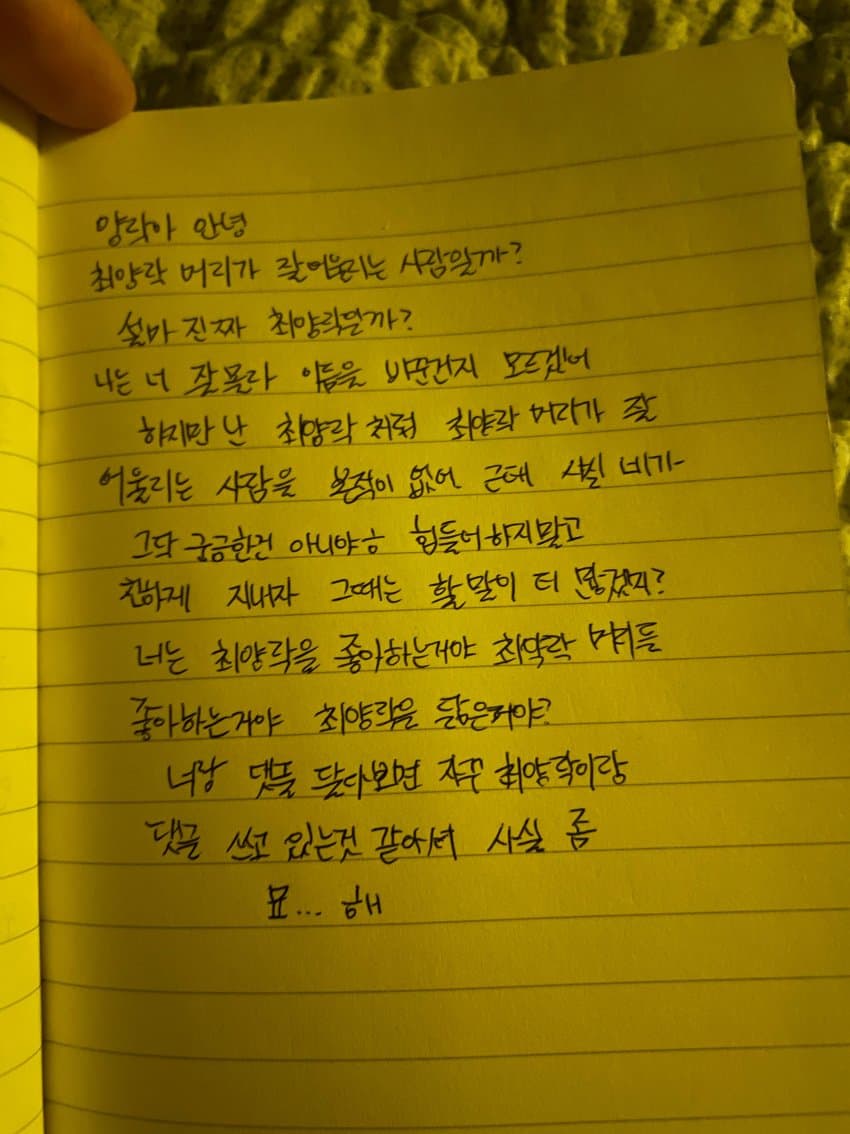 양락아 안녕
최양락 머리가 잘어울리는 사람일까?
설마 진짜 최양락일까?
나는 너 잘몰라 이름을 바꾼건지 모르겠어
하지만 난 최양락 처럼 최양락 머리가 잘
어울리는 사람을 본적이 없어 근데 사실 네가
그닥 궁금한건 아니야ㅎ 힘들어하지말고
친하게 지내자 그때는 할말이 더 많겠지?
너는 최양락을 좋아하는거야 최양락 머리를
좋아하는거야 최양락을 닮은거야?
너랑 댓글 달다보면 자꾸 최양락이랑
댓글 쓰고 있는것 같아서 사실 좀
묘... 해